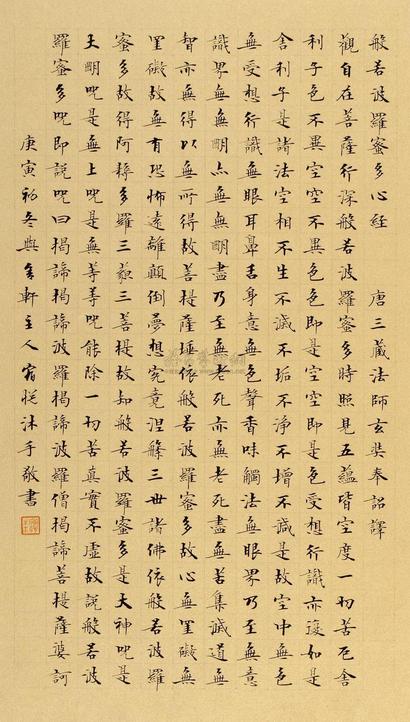 般若波羅蜜多心經 唐三藏法師玄奘奉詔譯
觀自在菩薩行深般若波羅蜜多時照見五蘊皆空度一切苦厄舍
利子色不異空空不異色色即是空空即是色受想行識亦復如是
舍利子是諸法空相不生不滅不垢不淨不增不減是故空中無色
無受想行識無眼耳鼻舌身意無色聲香味觸法無眼界乃至無意
識界無無明亦無無明盡乃至無老死亦無老死盡無苦集滅道無
智亦無得以無所得故菩提薩埵依般若波羅蜜多故心無罣礙無
罣礙故無有恐怖遠離顛倒夢想究竟涅槃三世諸佛依般若波羅
蜜多故得阿耨多羅三藐三菩提故知般若波羅蜜多是大神咒是
大明咒是無上咒是無等等咒能除一切苦真實不虛故說般若波
羅蜜多咒即說咒曰揭諦揭諦波羅揭諦波羅僧揭諦菩提薩婆訶
庚寅初冬與軒主人沐手敬書